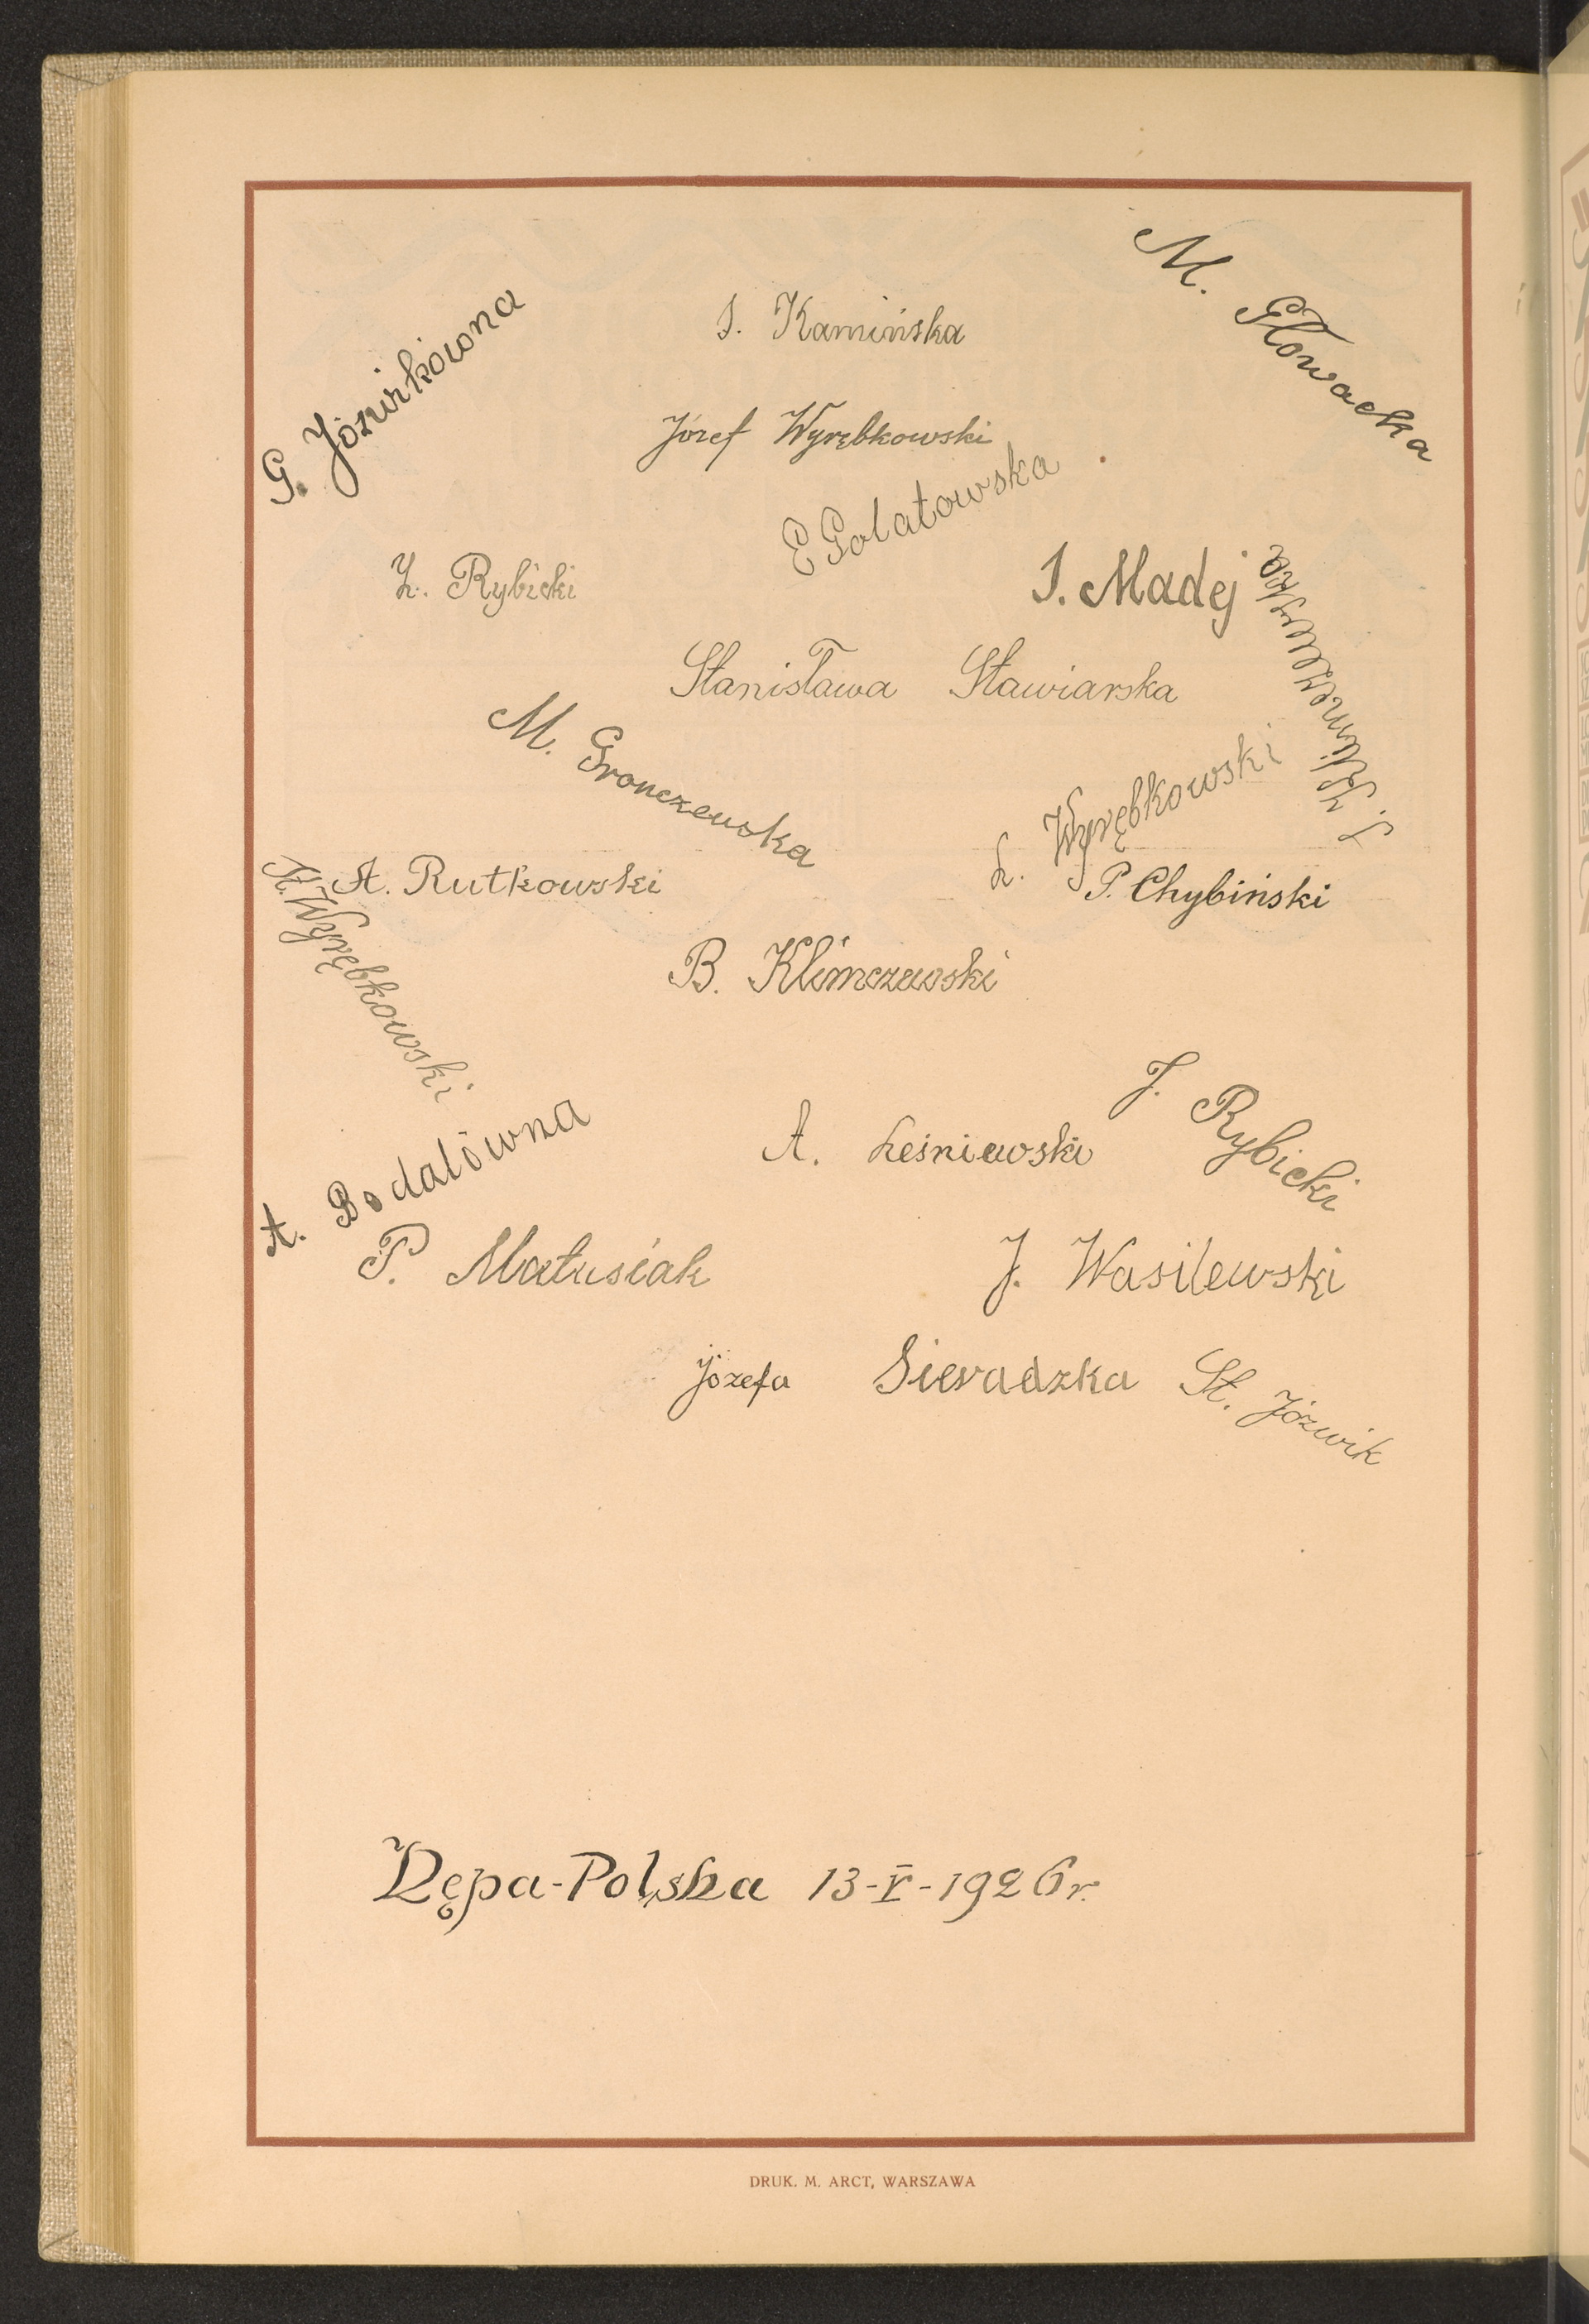 M. Głowacka
S. Kamińska
G. Józwikówna
Józef Wyrębkowski
E Golatowska
Z. Rybicki
S. Madej
J. Klimczewska
Stanisława Stawiarska
M. Gronczewska
L. Wyrębkowski
A. Rutkowski
P. Chybiński
A. Wyrębkowski
B. Klimczewski
J. Rybicki
A. Leśniewski
A. Bodalówna
P. Matusiak
J. Wasilewski
Józefa Sieradzka
St. Józwik
Kępa-Polska 13-V-1926 r.
DRUK. M. ARCT, WARSZAWA